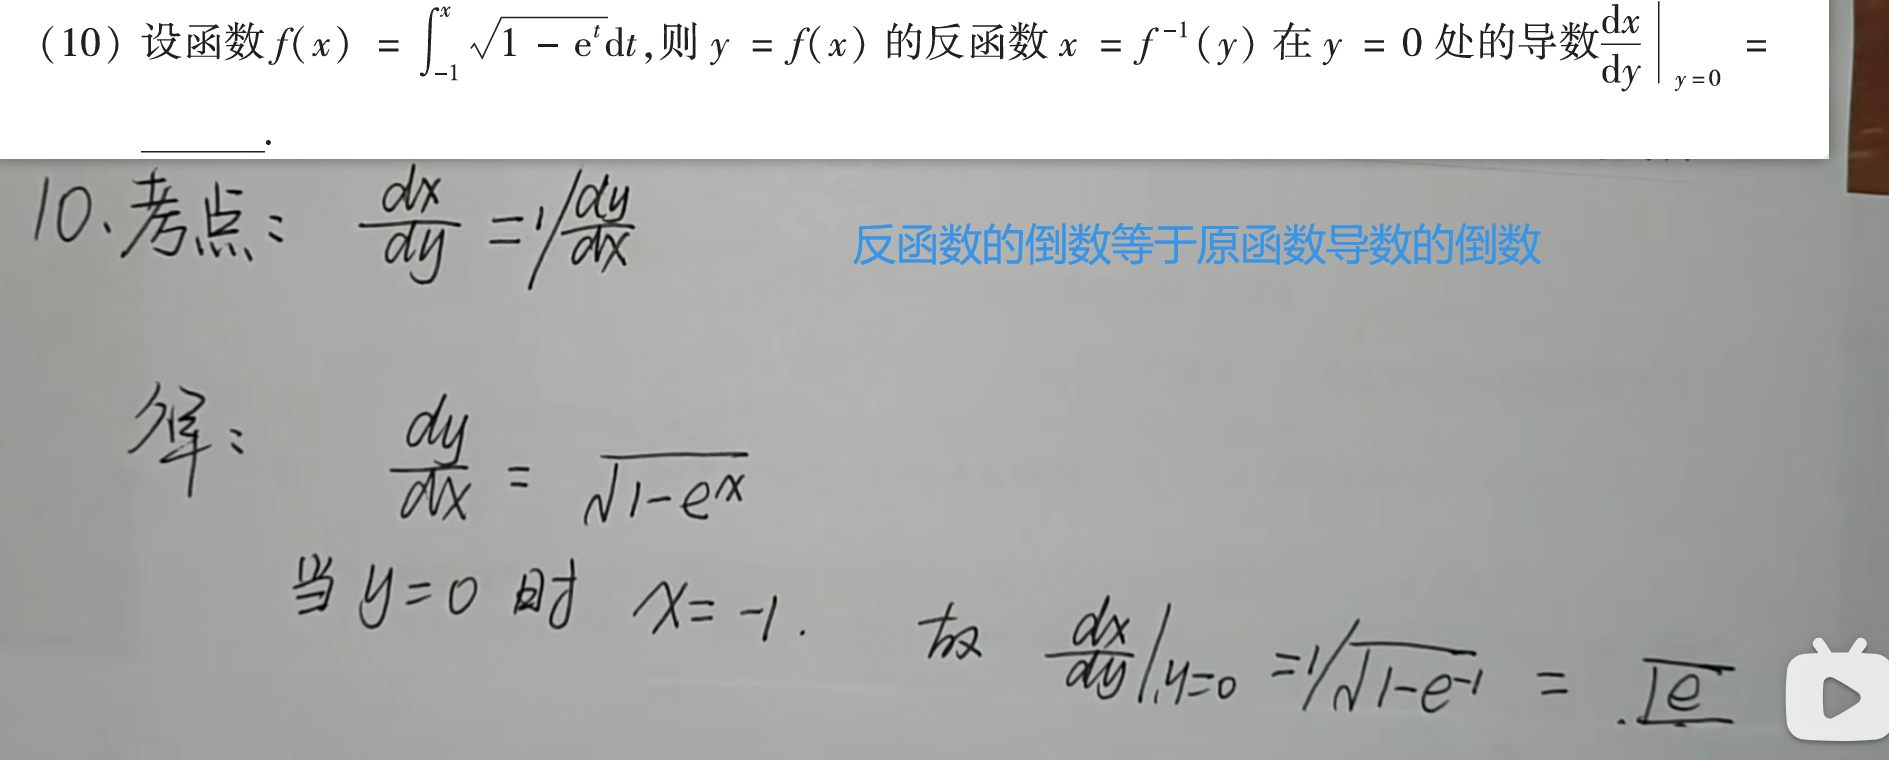 (10) 设函数 f(x) = ∫_{-1}^{x} √(1 - e^t) dt,则 y = f(x) 的反函数 x = f^{-1}(y) 在 y = 0 处的导数 dx/dy |_{y=0} =
______.
10、考点： dx/dy = 1/(dy/dx) 反函数的倒数等于原函数导数的倒数
解： dy/dx = √(1-e^x)
当 y=0 时 x= -1. 故 dx/dy |_{y=0} = 1/√(1-e^{-1}) =